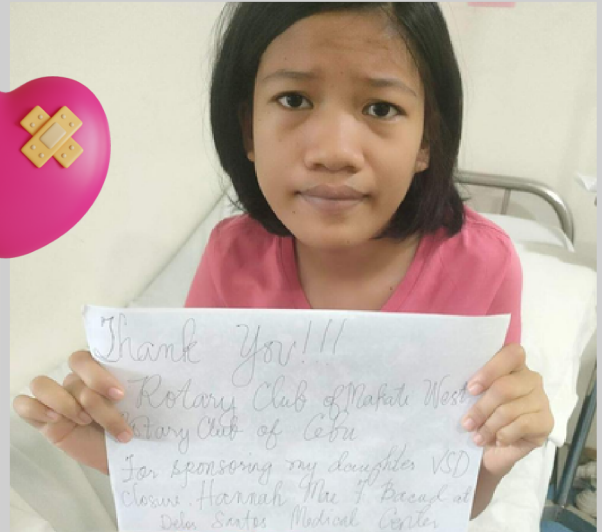 Thank You!!!
Rotary Club of Makati West
Rotary Club of Cebu
For sponsoring my daughter VSD
closure. Hannah Mae F. Bacud at
Delos Santos Medical Center